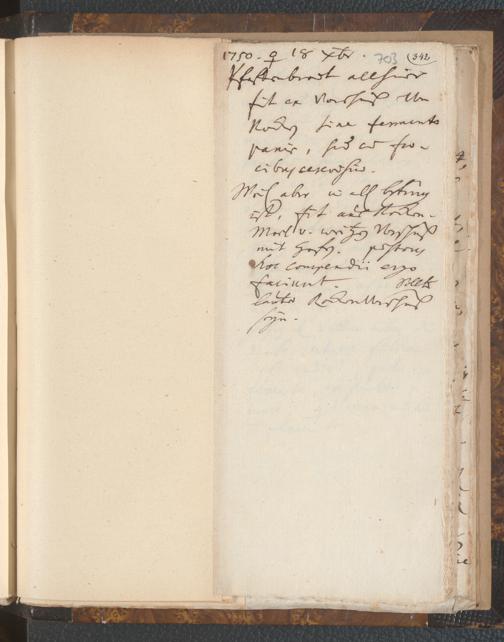 1750. ♀ 18 Xbr. 703 (342
allhier
fit ex Vorschuß
Rocken sine fermento
panis, sed cum fae-
cibus cerevisiae.
Weil aber
ist, fit aus Rocken-
Meel v. weitzen Vorschuß
mit Hefen. pistores
hoc compendii ergo
faciunt. Sollte
lauter Rocken Vorschuß
seyn.